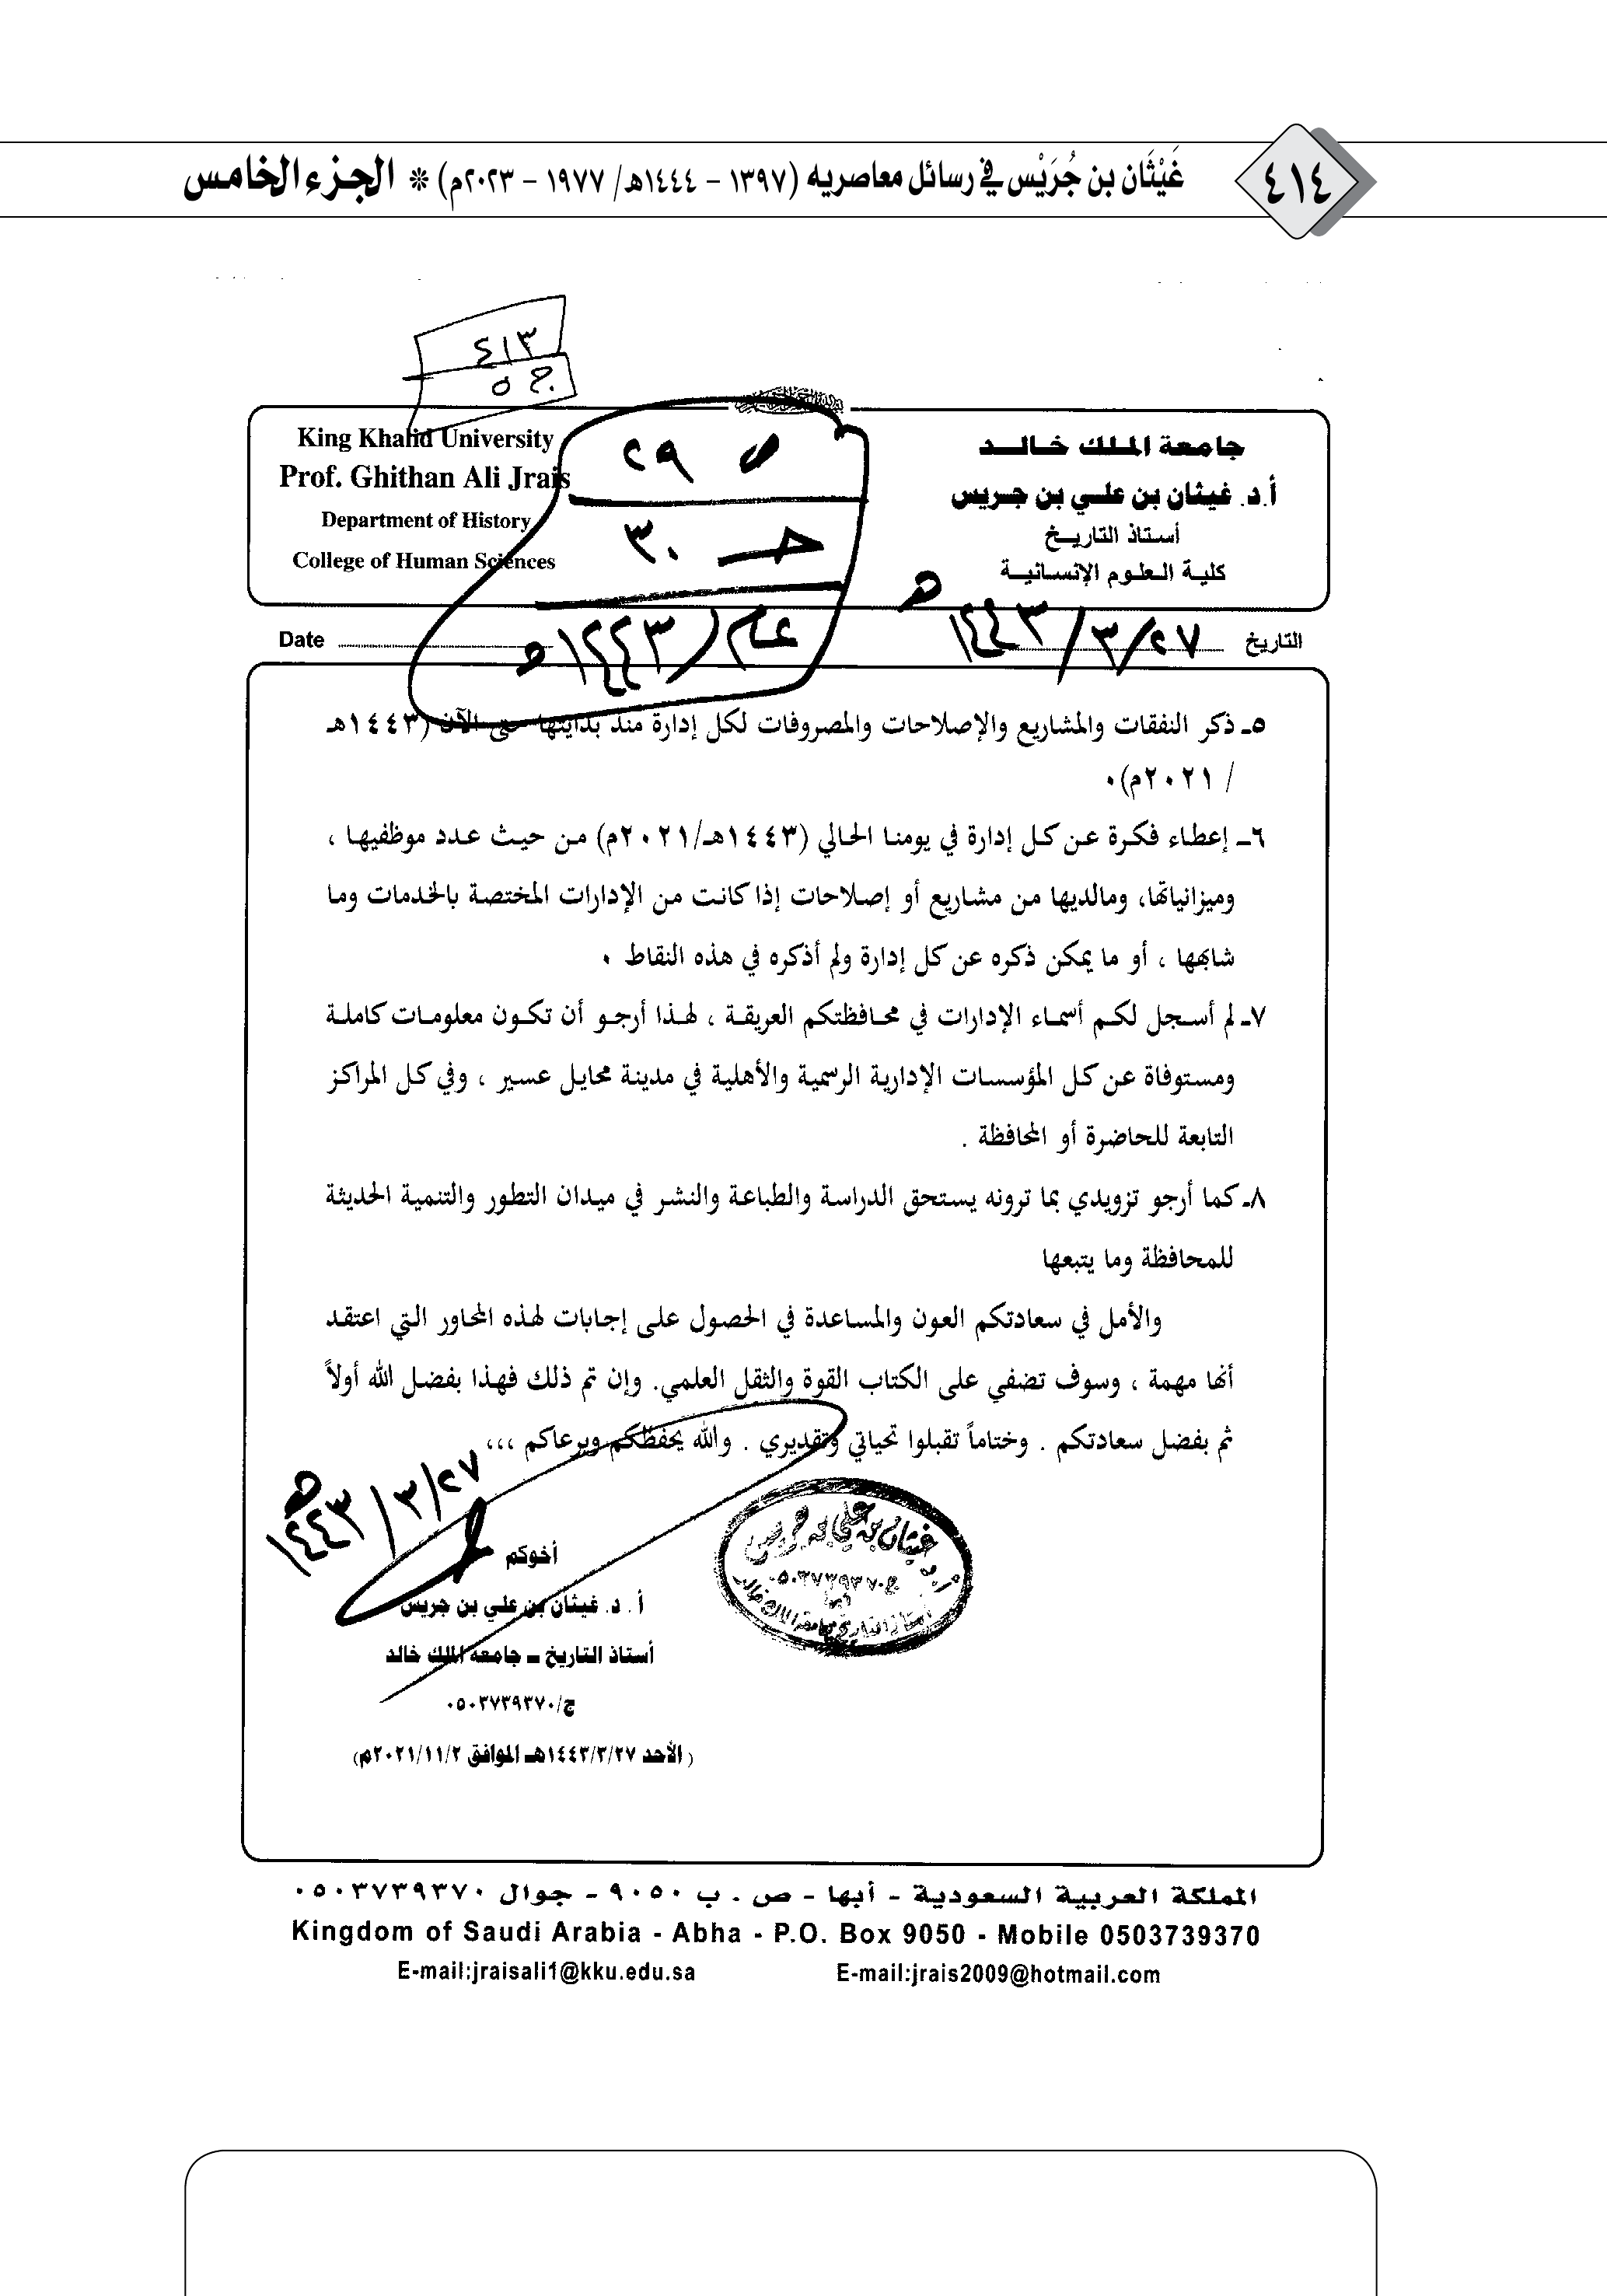 ٤١٤
غَيْثَان بن جُرَيْس في رسائل معاصريه (١٣٩٧ – ١٤٤٤هـ/ ١٩٧٧ – ٢٠٢٣م) * الجزء الخامس
٤١٣
ج ٥
جامعة الملك خالد
أ.د. غيثان بن علي بن جريس
أستاذ التاريخ
كلية العلوم الإنسانية
King Khalid University
Prof. Ghithan Ali Jrais
Department of History
College of Human Sciences
ص ٢٩
ج ٣٠
عام / ١٤٤٣هـ
التاريخ ٢٧ / ٣ / ١٤٤٣هـ
Date
٥ـ ذكر النفقات والمشاريع والإصلاحات والمصروفات لكل إدارة منذ بدايتها حتى الآن (١٤٤٣هـ
/ ٢٠٢١م)٠
٦ـ إعطاء فكرة عن كل إدارة في يومنا الحالي (١٤٤٣هـ/٢٠٢١م) من حيث عدد موظفيها ،
وميزانياتها، ومالديها من مشاريع أو إصلاحات إذا كانت من الإدارات المختصة بالخدمات وما
شابهها ، أو ما يمكن ذكره عن كل إدارة ولم أذكره في هذه النقاط ٠
٧ـ لم أسجل لكم أسماء الإدارات في محافظتكم العريقة ، لهذا أرجو أن تكون معلومات كاملة
ومستوفاة عن كل المؤسسات الإدارية الرسمية والأهلية في مدينة محايل عسير ، وفي كل المراكز
التابعة للحاضرة أو المحافظة .
٨ـ كما أرجو تزويدي بما ترونه يستحق الدراسة والطباعة والنشر في ميدان التطور والتنمية الحديثة
للمحافظة وما يتبعها
والأمل في سعادتكم العون والمساعدة في الحصول على إجابات لهذه المحاور التي اعتقد
أنها مهمة ، وسوف تضفي على الكتاب القوة والثقل العلمي. وإن تم ذلك فهذا بفضل الله أولاً
ثم بفضل سعادتكم . وختاماً تقبلوا تحياتي وتقديري . والله يحفظكم ويرعاكم ،،،
٢٧ / ٣ / ١٤٤٣هـ
أخوكم
أ . د. غيثان بن علي بن جريس
أستاذ التاريخ ـ جامعة الملك خالد
ج/٠٥٠٣٧٣٩٣٧٠
( الأحد ١٤٤٣/٣/٢٧هـ الموافق ٢٠٢١/١١/٢م)
غيثان بن علي بن جريس
ج ٠٥٠٣٧٣٩٣٧٠
أستاذ التاريخ بجامعة الملك خالد
المملكة العربية السعودية - أبها - ص . ب ٩٠٥٠ - جوال ٠٥٠٣٧٣٩٣٧٠
Kingdom of Saudi Arabia - Abha - P.O. Box 9050 - Mobile 0503739370
E-mail:jraisali1@kku.edu.sa E-mail:jrais2009@hotmail.com